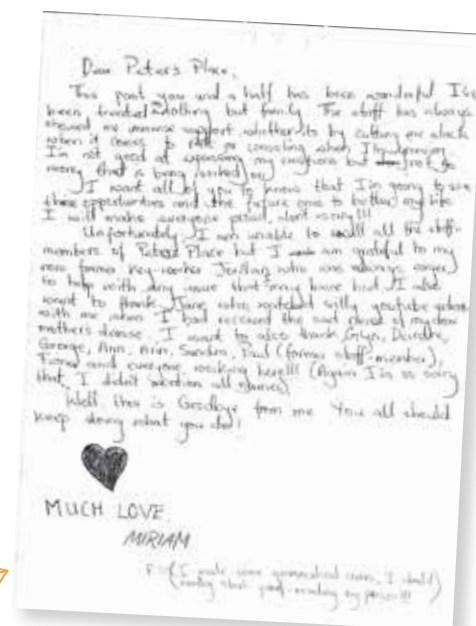 Dear Peter's Place,
This past year and a half has been wonderful I've
been treated nothing but family The staff has always
showed me immense support whether its by cutting me slack
when it comes to
I'm not good at expressing my emotions but
sorry that is being worked on
I want all of you to know that I'm going to use
these opportunities and the future ones to better my life
I will make everyone proud, don't worry!!!
Unfortunately I am unable to recall all the staff
members of Peters Place but I am grateful to my
now former key-worker Jordan who was always eager
to help with any issue that I may have had. I also
want to thank Jane who watched silly youtube videos
with me when I had received the bad news of my
mother's disease. I want to also thank Glyn, Deirdre,
George, Ann, Ann, Sandra, Paul (former staff member),
Fiona and everyone working here!!! (Again I'm so sorry
that I didn't mention all names)
Well this is Goodbye from me You all should
keep doing what you do!
MUCH LOVE
MIRIAM
I made some grammatical errors, I should
proof-reading my person!!!